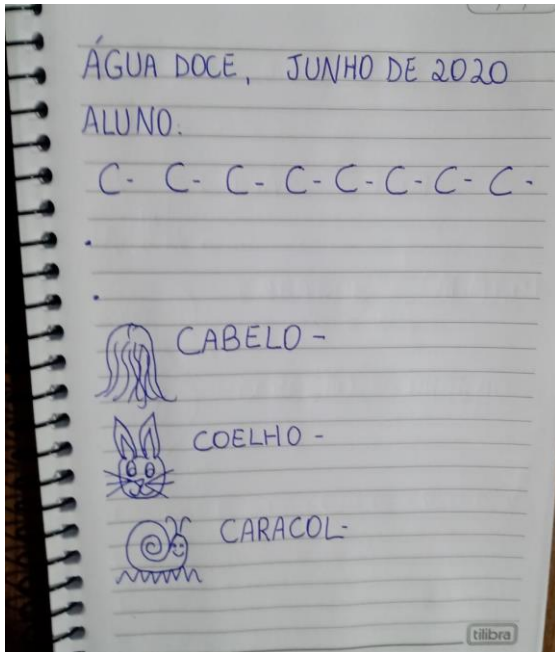 ÁGUA DOCE, JUNHO DE 2020
ALUNO:
C- C- C- C- C- C- C- C-
.
.
CABELO -
COELHO -
CARACOL-
tilibra